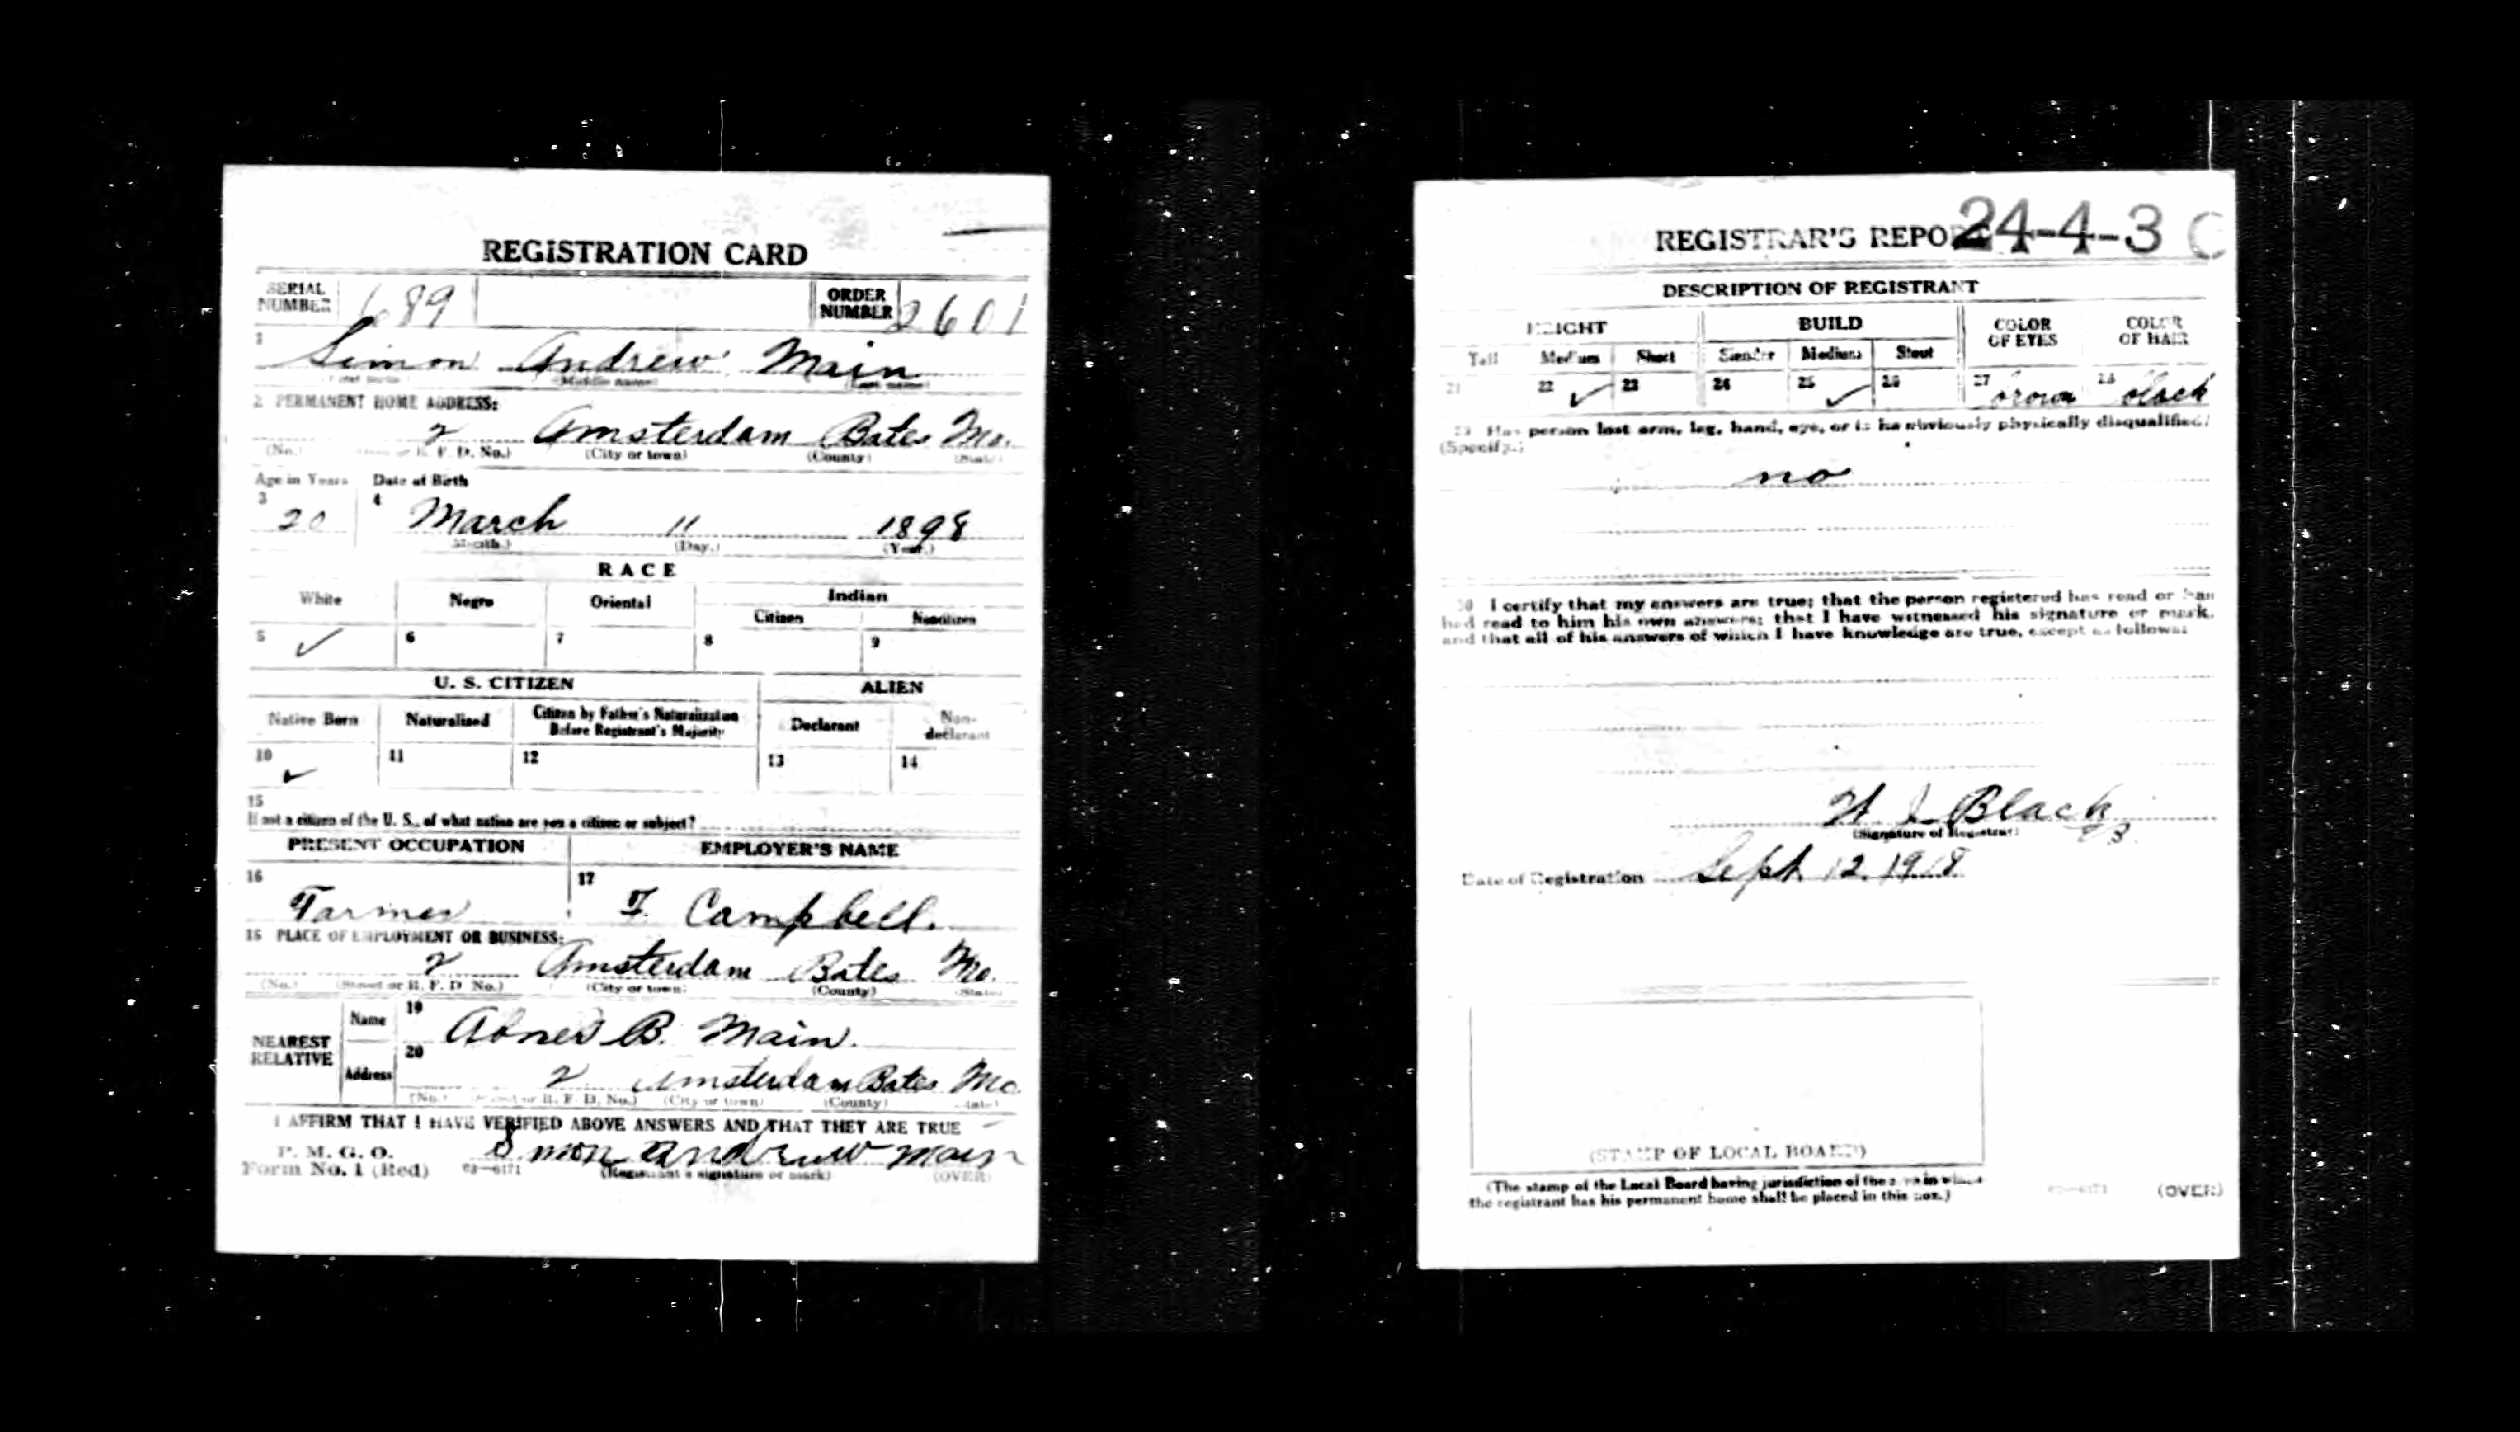 REGISTRATION CARD
SERIAL NUMBER 689 ORDER NUMBER 2601
1 Simon Andrew Main
(Middle name) (Last name)
2 PERMANENT HOME ADDRESS:
2 Amsterdam Bates Mo.
(No.) R. F. D. No.) (City or town) (County) (State)
Age in Years Date of Birth
3 20 4 March 11 1898
(Month.) (Day.) (Year.)
RACE
White Negro Oriental Indian
Citizen Noncitizen
5 ✓ 6 7 8 9
U. S. CITIZEN ALIEN
Native Born Naturalized Citizen by Father's Naturalization Before Registrant's Majority Declarant Non-declarant
10 ✓ 11 12 13 14
15
If not a citizen of the U. S., of what nation are you a citizen or subject?
PRESENT OCCUPATION EMPLOYER'S NAME
16 Farmer 17 Campbell.
18 PLACE OF EMPLOYMENT OR BUSINESS:
2 Amsterdam Bates Mo.
(No.) (Street or R. F. D. No.) (City or town) (County) (State)
NEAREST RELATIVE Name 19 Abner B. Main.
Address 20 2 Amsterdam Bates Mo
(No.) (Street or R. F. D. No.) (City or town) (County) (State)
I AFFIRM THAT I HAVE VERIFIED ABOVE ANSWERS AND THAT THEY ARE TRUE
P. M. G. O.
Form No. 1 (Red) 03—6171 Simon Andrew Main
(Registrant's signature or mark) (OVER)
REGISTRAR'S REPORT 24-4-3 C
DESCRIPTION OF REGISTRANT
HEIGHT BUILD COLOR OF EYES COLOR OF HAIR
Tall Medium Short Slender Medium Stout
21 22 ✓ 23 24 25 ✓ 26 27 brown 28 black
29 Has person lost arm, leg, hand, eye, or is he obviously physically disqualified?
(Specify.)
no
30 I certify that my answers are true; that the person registered has read or has
had read to him his own answers; that I have witnessed his signature or mark,
and that all of his answers of which I have knowledge are true, except as follows:
Black
(Signature of Registrar)
Date of Registration Sept. 12, 1918
(STAMP OF LOCAL BOARD)
(The stamp of the Local Board having jurisdiction of the area in which
the registrant has his permanent home shall be placed in this box.)
03—6171 (OVER)